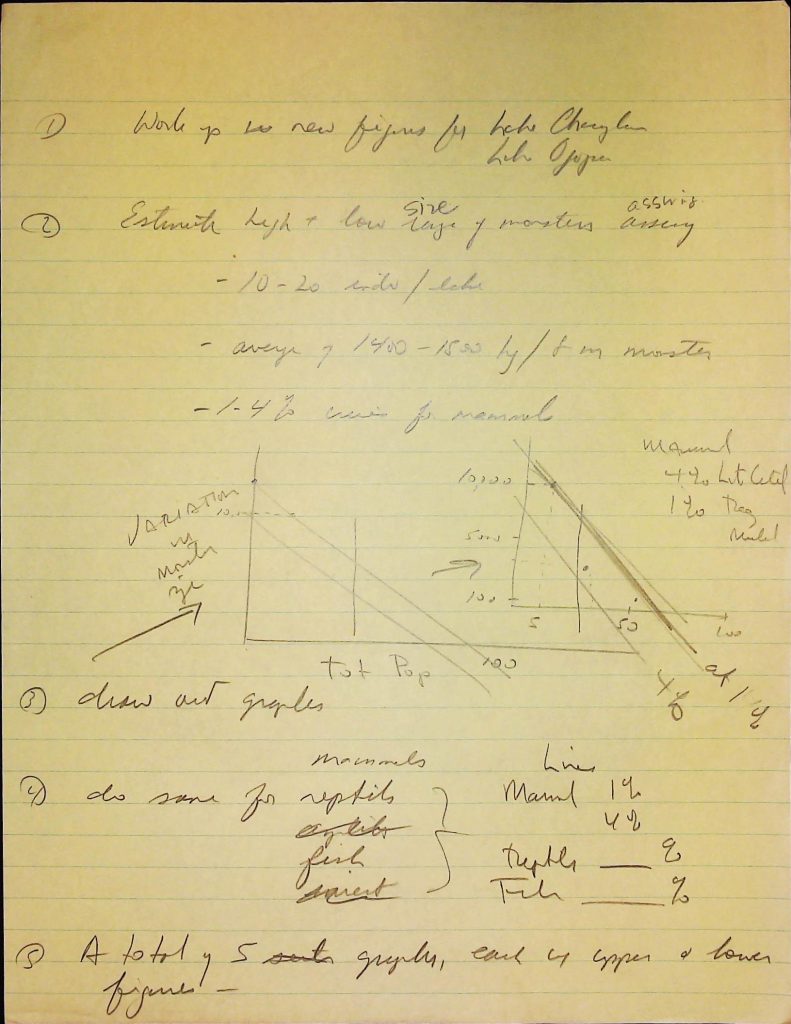 ① Work up new figures for Lake Champlain
Lake
② Estimate high + low size range of monsters assuming
- 10-20 indiv / lake
- average of 1400 - 1500 kg / 8 m monster
- 1-4% for mammals
Mammal
4%
1%
VARIATION
in
monster
size
10,000
10,000
5000
100
5
50
100
Tot Pop
100
4%
at 1%
③ draw out graphs
mammals
Lines
④ do same for reptils
Mammal 1%
4%
fish
Reptls ___ %
Fish ___ %
⑤ A total of 5 graphs, each w upper & lower
figures -